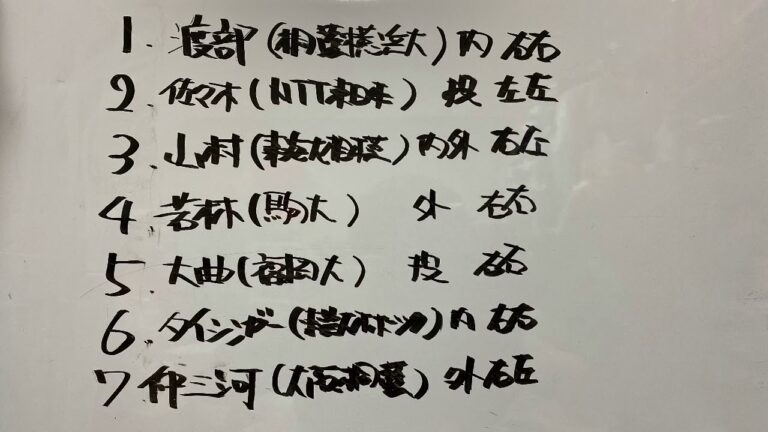 1. 渡部(桐蔭横浜大) 内 右右
2. 佐々木(NTT東日本) 投 左左
3. 山村(東海大相模) 内外 右左
4. 若林(駒大) 外 右右
5. 大曲(福岡大) 投 右右
6. タイシンガー 内 右右
7 仲三河(大阪桐蔭) 外 右左